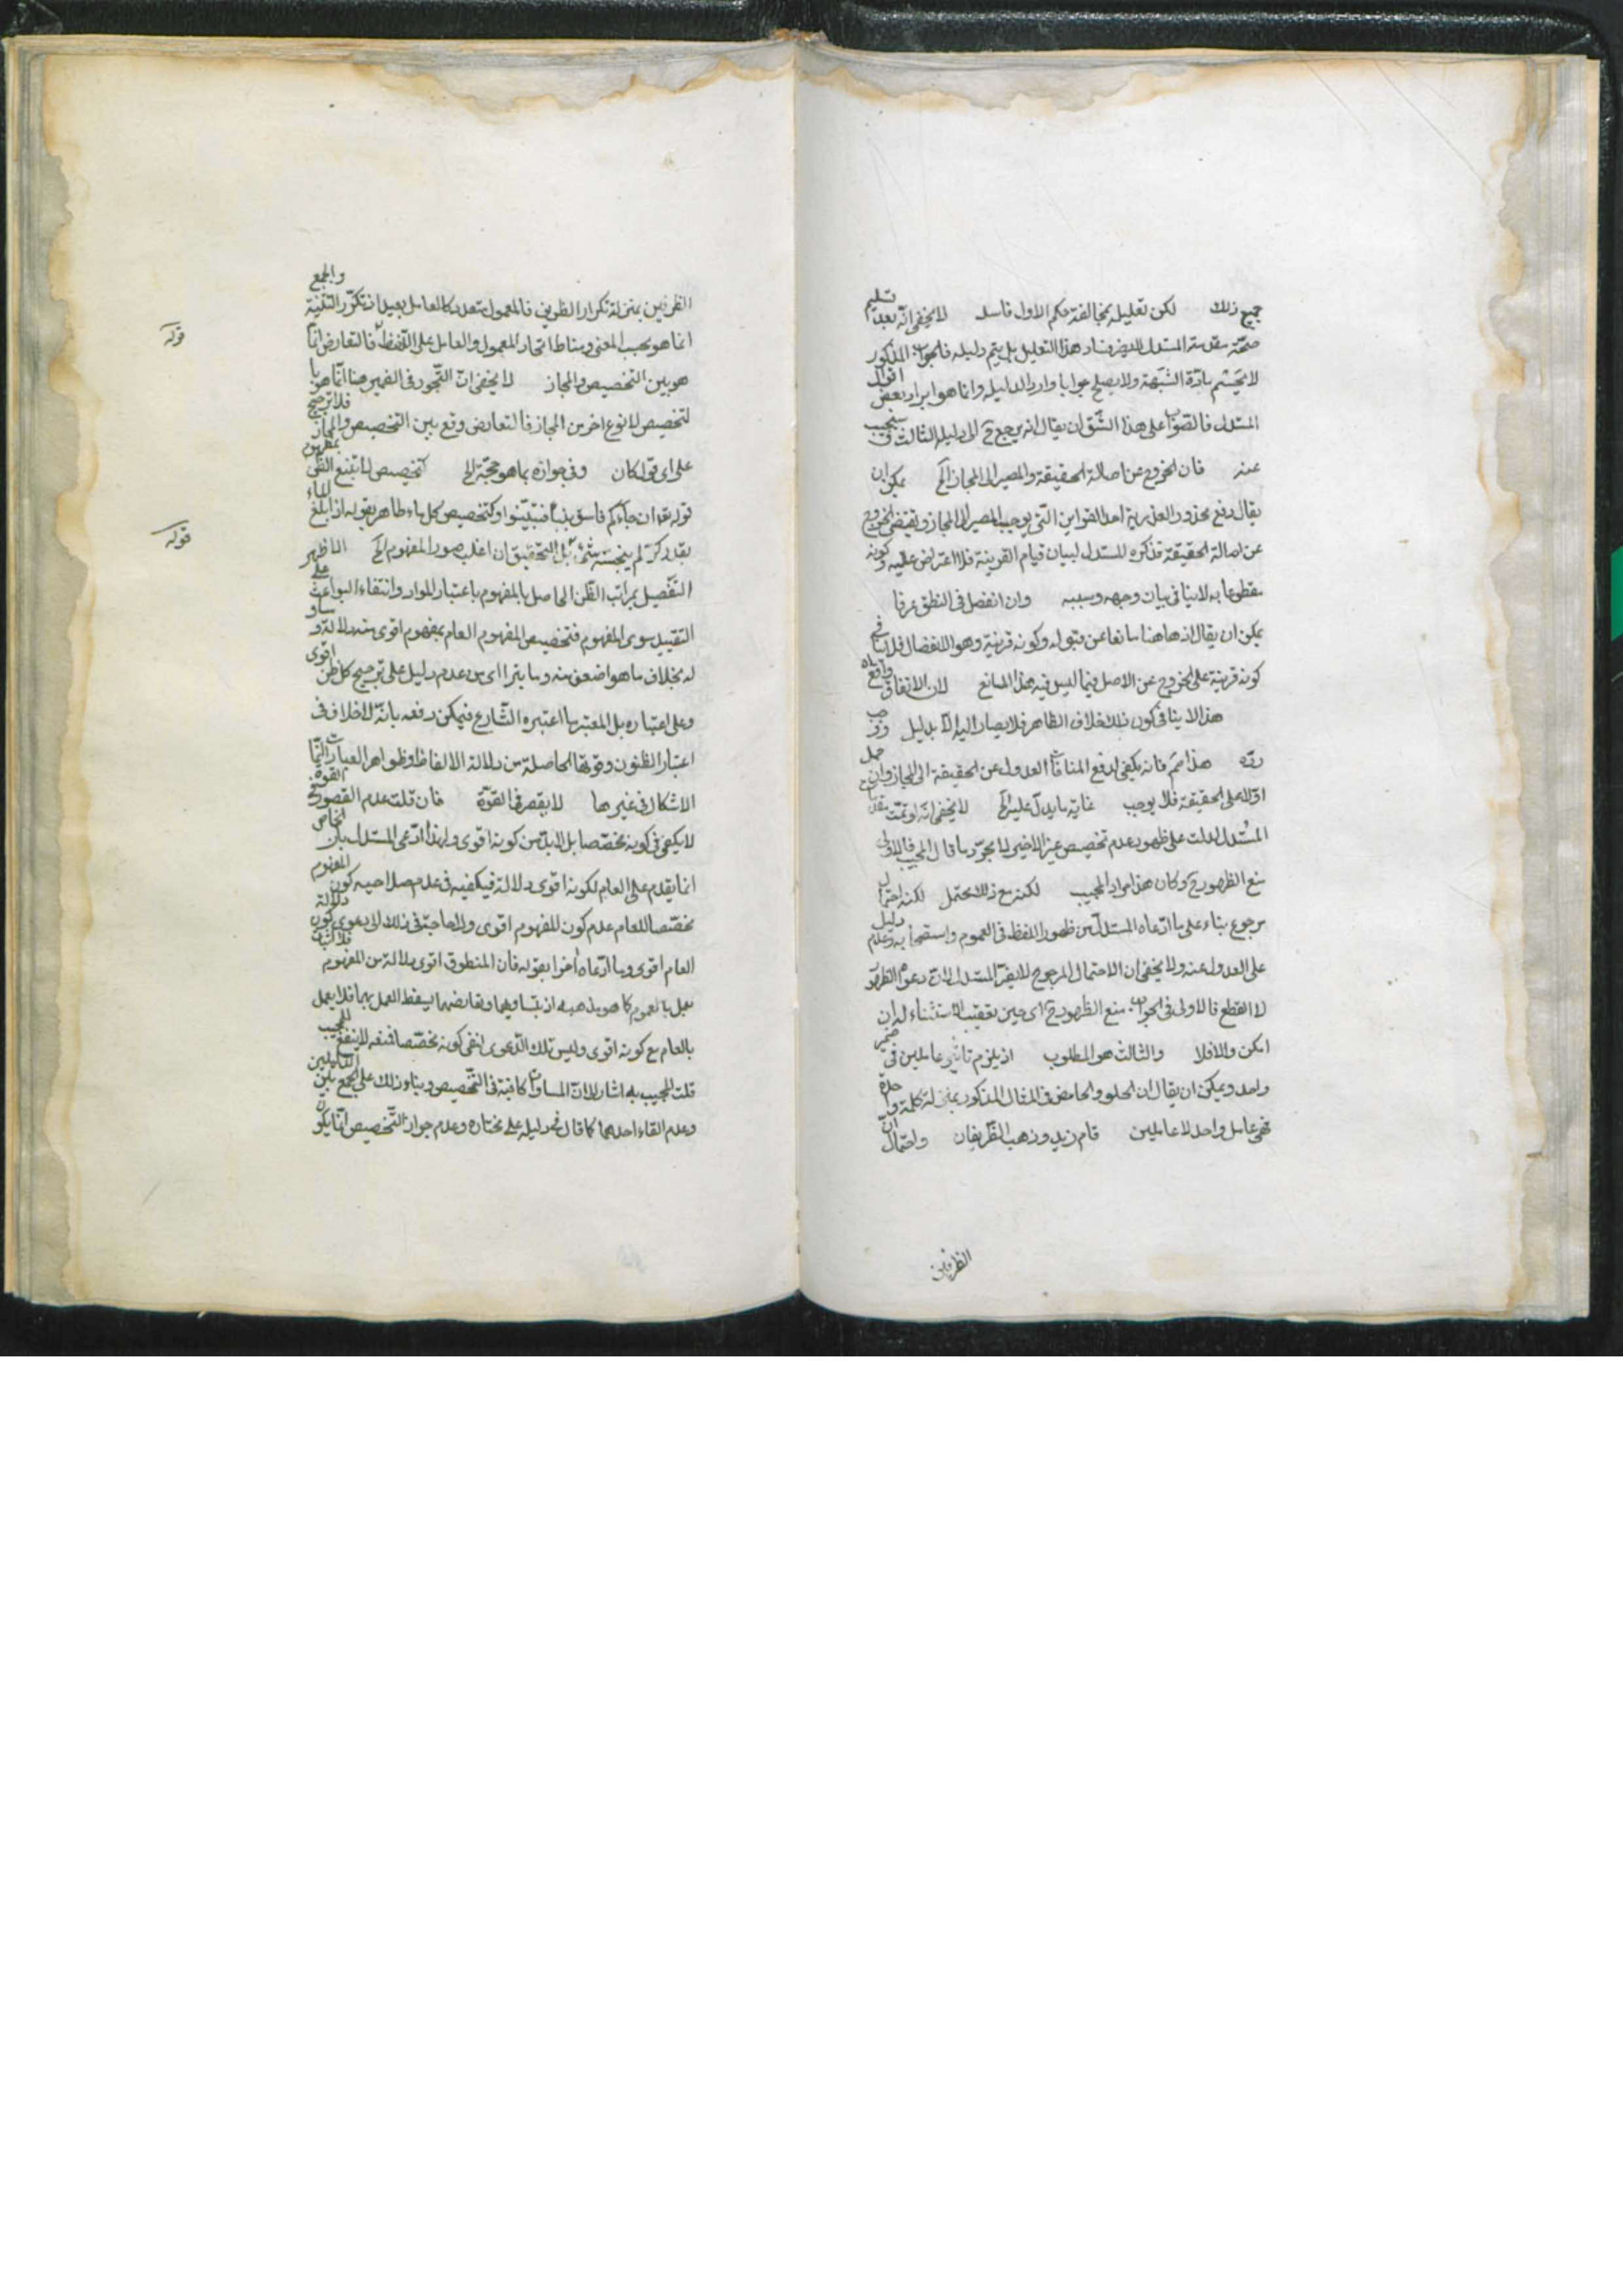 جميع ذلك لكن تعليله بمخالفته حكم الاول فاسد لا يخفى انّه بعد تسليم
صحّة مقدمة المستدل لا يضر فساد هذا التعليل بل يتم دليله فالجواب المذكور
لا يحسم مادّة الشبهة ولا يصلح جوابا واردا لدليله وانما هو ايراد بعض اقوال
المستدل فالصواب على هذا الشق ان يقال انه يرجع ح الى دليله الثالث سنجيب
عنه فان الخروج عن اصالة الحقيقة والمصير الى المجاز الخ يمكن ان
يقال دفع محذور الهذرية احد القراين التي يوجب المصير الى المجاز ويقتضى الخروج
عن اصالة الحقيقة فذكره المستدل لبيان قيام القرينة فلا اعتراض عليه وكونه
مقطوعا به لا ينافى بيان وجهه وسببه وان انفصل فى النطق عرفا
يمكن ان يقال انه هاهنا مانعا عن قبوله وكونه قرينة وهو الانفصال فلا ينافى
كونه قرينة على الخروج عن الاصل فيما ليس فيه هذا المانع لان الاتفاق واقع
هذا لا ينافى كون ذلك خلاف الظاهر فلا يصار اليه الا بدليل
ردّه هذا مم فانه يكفى لدفع المنافاة العدول عن الحقيقة الى المجاز وان حمل
اولا على الحقيقة فلا يوجب غاية ما يدل عليه الخ لا يخفى انه لو تمّت مقدمات
المستدل لدلت على ظهور عدم تخصيص غير الاخير لا مجرّد ما قال المجيب فالاولى
منع الظهور ح وكان هذا مراد المجيب لكنه مع ذلك محتمل لكنه احتمال
مرجوع بناء على ما ادّعاه المستدل من ظهور اللفظ فى العموم واستصحابه وعدم دليل
على العدول عنه ولا يخفى ان الاحتمال المرجوح لا يضرّ المستدل لان دعواه الظهور
لا القطع فالاولى فى الجواب منع الظهور ح اى حين تعقيب الاستثناء له ان
امكن والا فلا والثالث هو المطلوب اذ يلزم تاثير عاملين فى ضمير
واحد ويمكن ان يقال ان الحلو والحامض فى المثال المذكور بمنزلة كلمة واحدة
فهى عامل واحد لا عاملين قام زيد وذهب الظريفان واحتمال ان
الظريفين
الظريفين بمنزلة تكرار الظريف فالمعمول متعدد كالعامل بعيد اذ تكرّر التثنية والجمع
انما هو بحسب المعنى ومناط اتحاد المعمول والعامل على اللفظ فالتعارض انما
هو بين التخصيص والمجاز لا يخفى ان التجوز فى الضمير هنا انما هو با
لتخصيص لا نوع اخر من المجاز فالتعارض وقع بين التخصيص والمجاز فلا ترجيح
على اى قول كان وفى جوازه بما هو حجّة الخ كتخصيص لا تتبع الظن بمفهوم
قوله تعه ان جاءكم فاسق بنبأ فتبيّنوا وكتخصيص كل ماء طاهر بقوله اذا بلغ الماء
بقدر كرّ لم ينجسه شئ بل التحقيق ان اغلب صور المفهوم الخ الظاهر
التفصيل بمراتب الظن الحاصل بالمفهوم باعتبار الموارد وانتفاء البواعث على
التقييد سوى المفهوم فتخصيص المفهوم العام بمفهوم اقوى منه دلالة ومساو
له بخلاف ما هو اضعف منه وما يترااى من عدم دليل على ترجيح كل ظن اقوى
وعلى اعتباره بل المعتبر ما اعتبره الشارع فيمكن دفعه بانه لا خلاف فى
اعتبار الظنون وقوتها الحاصلة من دلالة الالفاظ وظواهر العبارات انما
الاشكال فى غيرها لا يقصر فى القوة فان قلت عدم القصور فى القوة
لا يكفى فى كونه مخصّصا بل لابدّ من كونه اقوى ولهذا ادّعى المستدل بان الخاص
انما يقدم على العام لكونه اقوى دلالة فيكفيه فى عدم صلاحيه كون المفهوم
مخصّصا للعام عدم كون المفهوم اقوى ولا حاجة فى ذلك الى دعوى كون دلالة
العام اقوى وما ادّعاه اخرا بقوله فان المنطوق اقوى دلالة من المفهوم
يعمل بالعموم كما هو مذهبه اذ بتساويهما وتعارضهما يسقط العمل بهما فلا يعمل
بالعام مع كونه اقوى وليس تلك الدعوى لنفى كونه مخصّصا فمنعه لا ينفع المجيب
قلت المجيب به اشار الى ان المساواة كافية فى التخصيص وبناء ذلك على الجمع بين الدليلين
وعدم القاء احدهما كما قال فى دليله على مختاره وعدم جواز التخصيص انما يكون
قوله
قوله